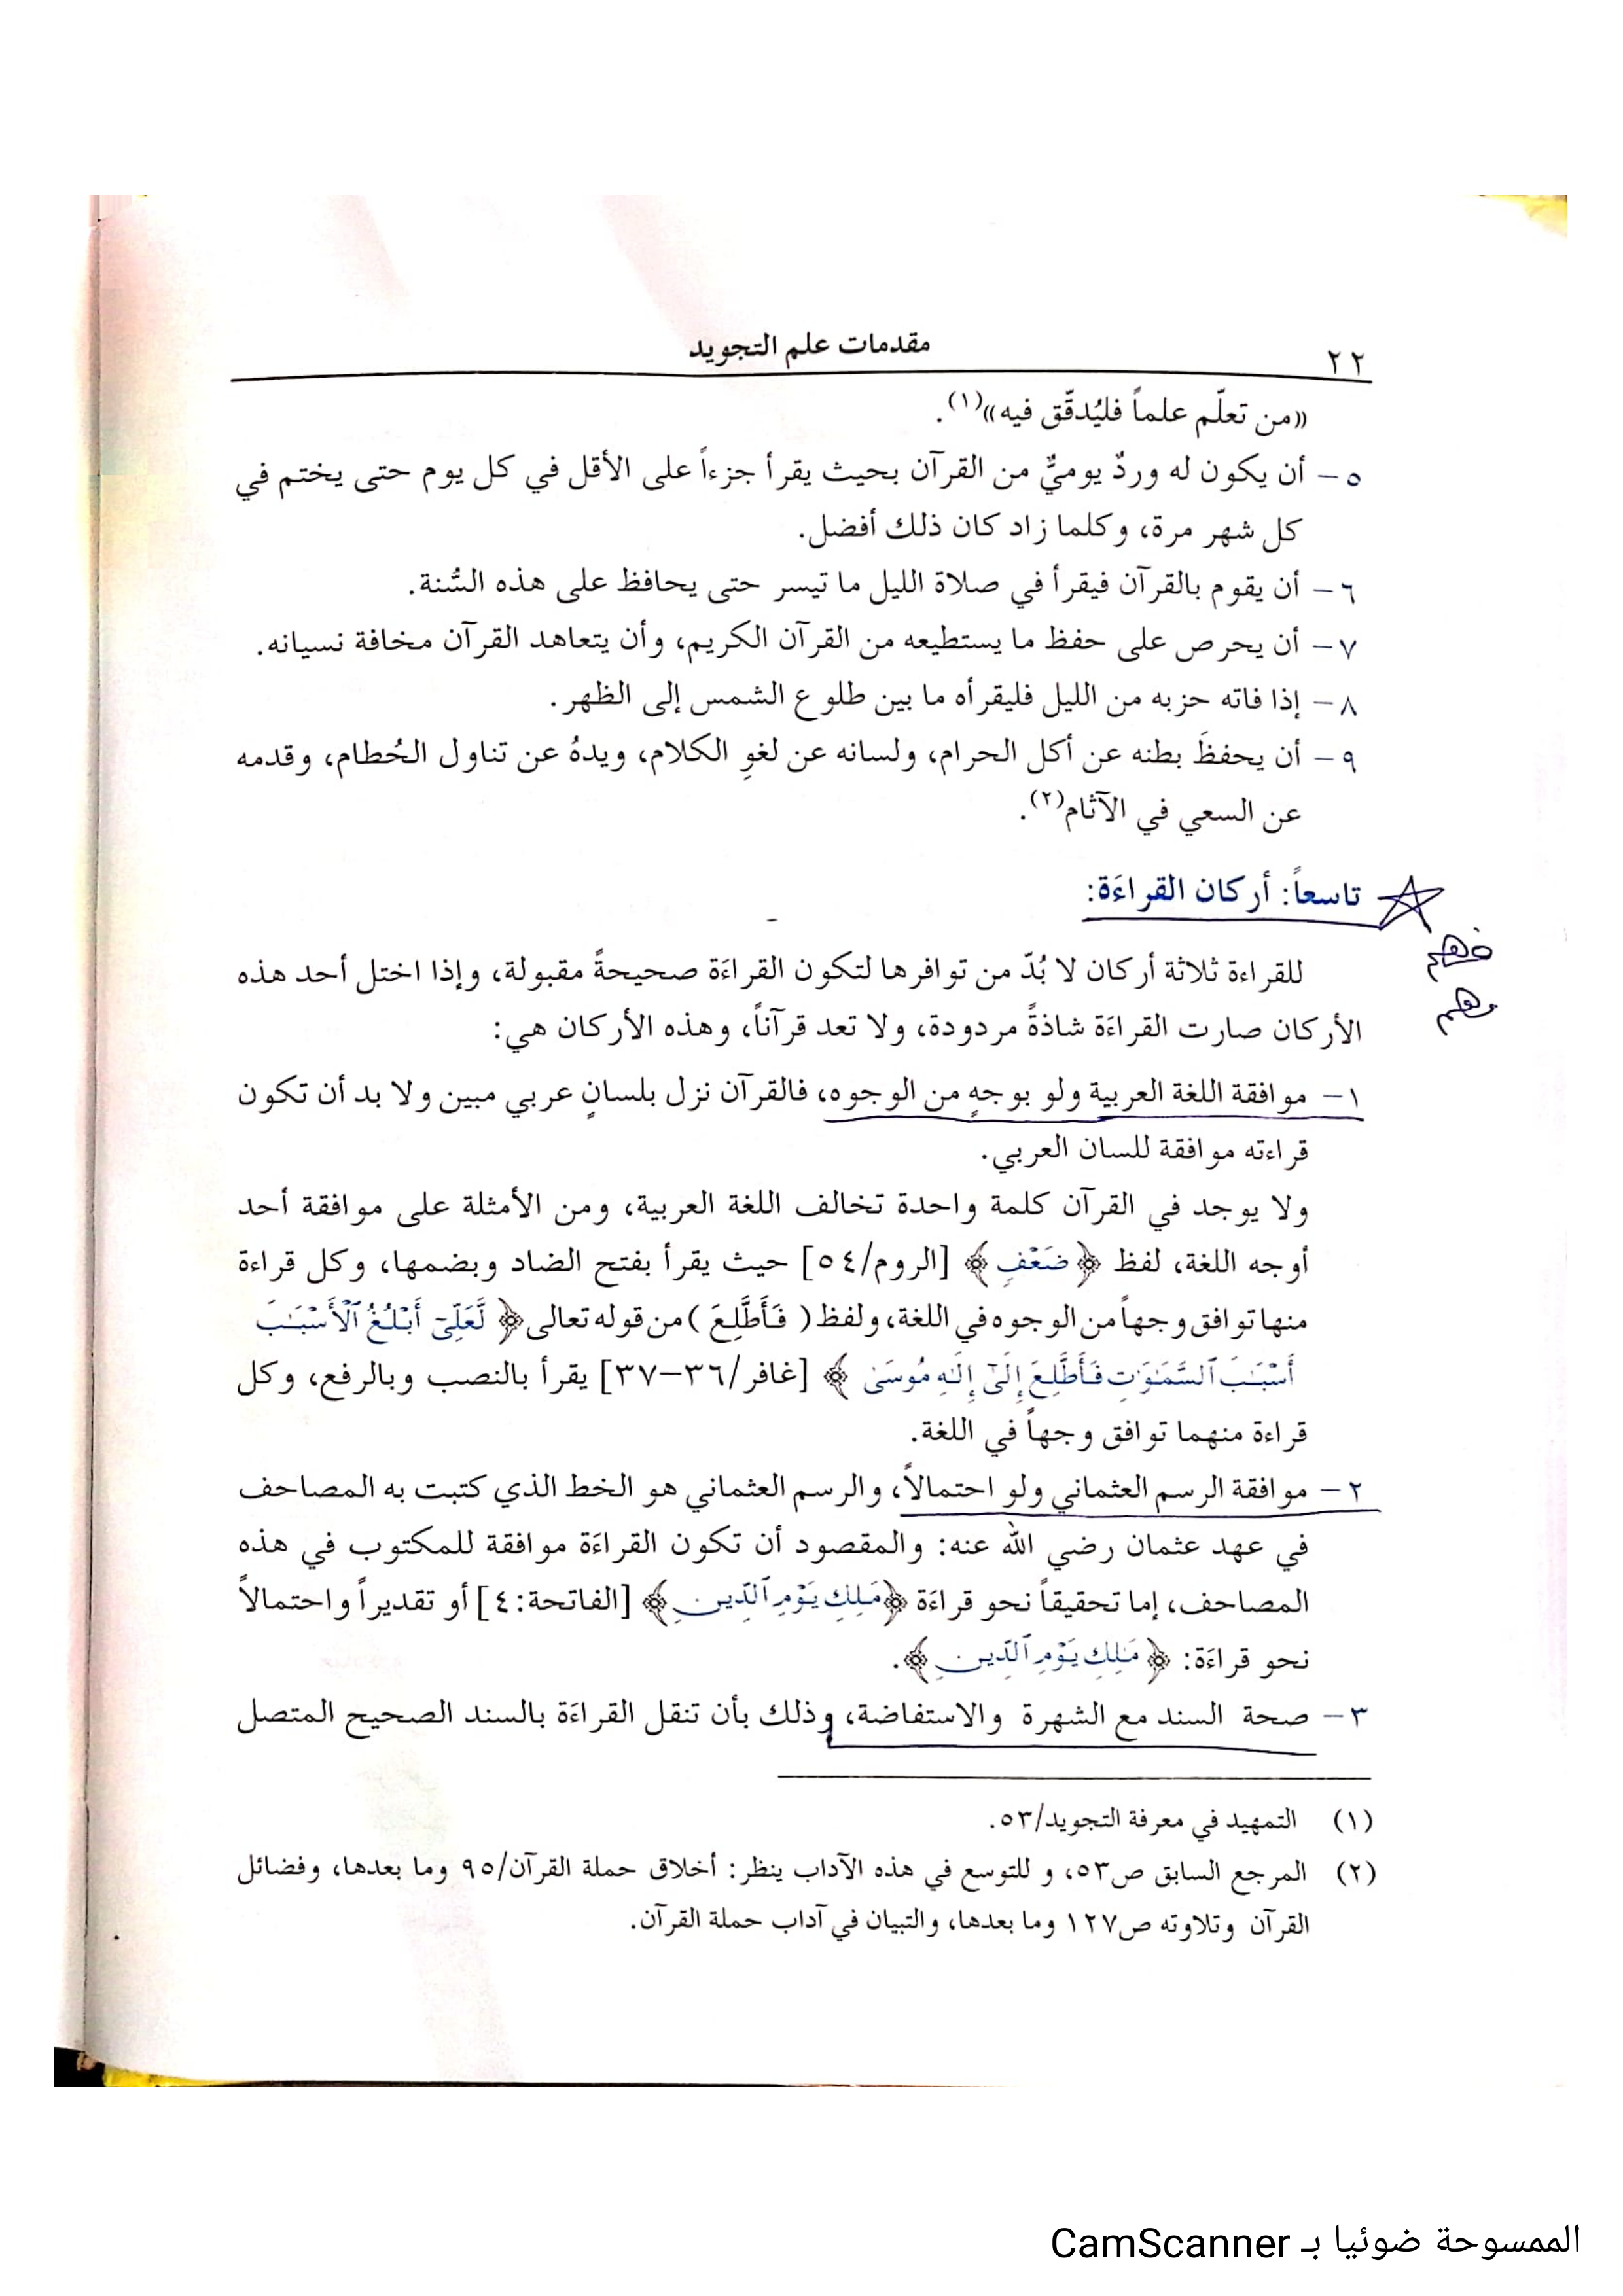 ٢٢
مقدمات علم التجويد
«من تعلّم علماً فليُدقّق فيه»(١).
٥ – أن يكون له وردٌ يوميٌّ من القرآن بحيث يقرأ جزءاً على الأقل في كل يوم حتى يختم في
كل شهر مرة، وكلما زاد كان ذلك أفضل.
٦ – أن يقوم بالقرآن فيقرأ في صلاة الليل ما تيسر حتى يحافظ على هذه السُّنة.
٧ – أن يحرص على حفظ ما يستطيعه من القرآن الكريم، وأن يتعاهد القرآن مخافة نسيانه.
٨ – إذا فاته حزبه من الليل فليقرأه ما بين طلوع الشمس إلى الظهر.
٩ – أن يحفظَ بطنه عن أكل الحرام، ولسانه عن لغوِ الكلام، ويدهُ عن تناول الحُطام، وقدمه
عن السعي في الآثام(٢).
تاسعاً: أركان القراءَة:
للقراءة ثلاثة أركان لا بُدّ من توافرها لتكون القراءَة صحيحةً مقبولة، وإذا اختل أحد هذه
الأركان صارت القراءَة شاذةً مردودة، ولا تعد قرآناً، وهذه الأركان هي:
١ – موافقة اللغة العربية ولو بوجهٍ من الوجوه، فالقرآن نزل بلسانٍ عربي مبين ولا بد أن تكون
قراءته موافقة للسان العربي.
ولا يوجد في القرآن كلمة واحدة تخالف اللغة العربية، ومن الأمثلة على موافقة أحد
أوجه اللغة، لفظ ﴿ضَعْفٍ﴾ [الروم/٥٤] حيث يقرأ بفتح الضاد وبضمها، وكل قراءة
منها توافق وجهاً من الوجوه في اللغة، ولفظ (فَأَطَّلِعَ) من قوله تعالى ﴿لَّعَلِّىٓ أَبْلُغُ ٱلْأَسْبَـٰبَ
أَسْبَـٰبَ ٱلسَّمَـٰوَٰتِ فَأَطَّلِعَ إِلَىٰٓ إِلَـٰهِ مُوسَىٰ﴾ [غافر/٣٦–٣٧] يقرأ بالنصب وبالرفع، وكل
قراءة منهما توافق وجهاً في اللغة.
٢ – موافقة الرسم العثماني ولو احتمالاً، والرسم العثماني هو الخط الذي كتبت به المصاحف
في عهد عثمان رضي الله عنه: والمقصود أن تكون القراءَة موافقة للمكتوب في هذه
المصاحف، إما تحقيقاً نحو قراءَة ﴿مَلِكِ يَوْمِ ٱلدِّينِ﴾ [الفاتحة:٤] أو تقديراً واحتمالاً
نحو قراءَة: ﴿مَـٰلِكِ يَوْمِ ٱلدِّينِ﴾.
٣ – صحة السند مع الشهرة والاستفاضة، وذلك بأن تنقل القراءَة بالسند الصحيح المتصل
(١) التمهيد في معرفة التجويد/٥٣.
(٢) المرجع السابق ص٥٣، و للتوسع في هذه الآداب ينظر: أخلاق حملة القرآن/٩٥ وما بعدها، وفضائل
القرآن وتلاوته ص١٢٧ وما بعدها، والتبيان في آداب حملة القرآن.
الممسوحة ضوئيا بـ CamScanner